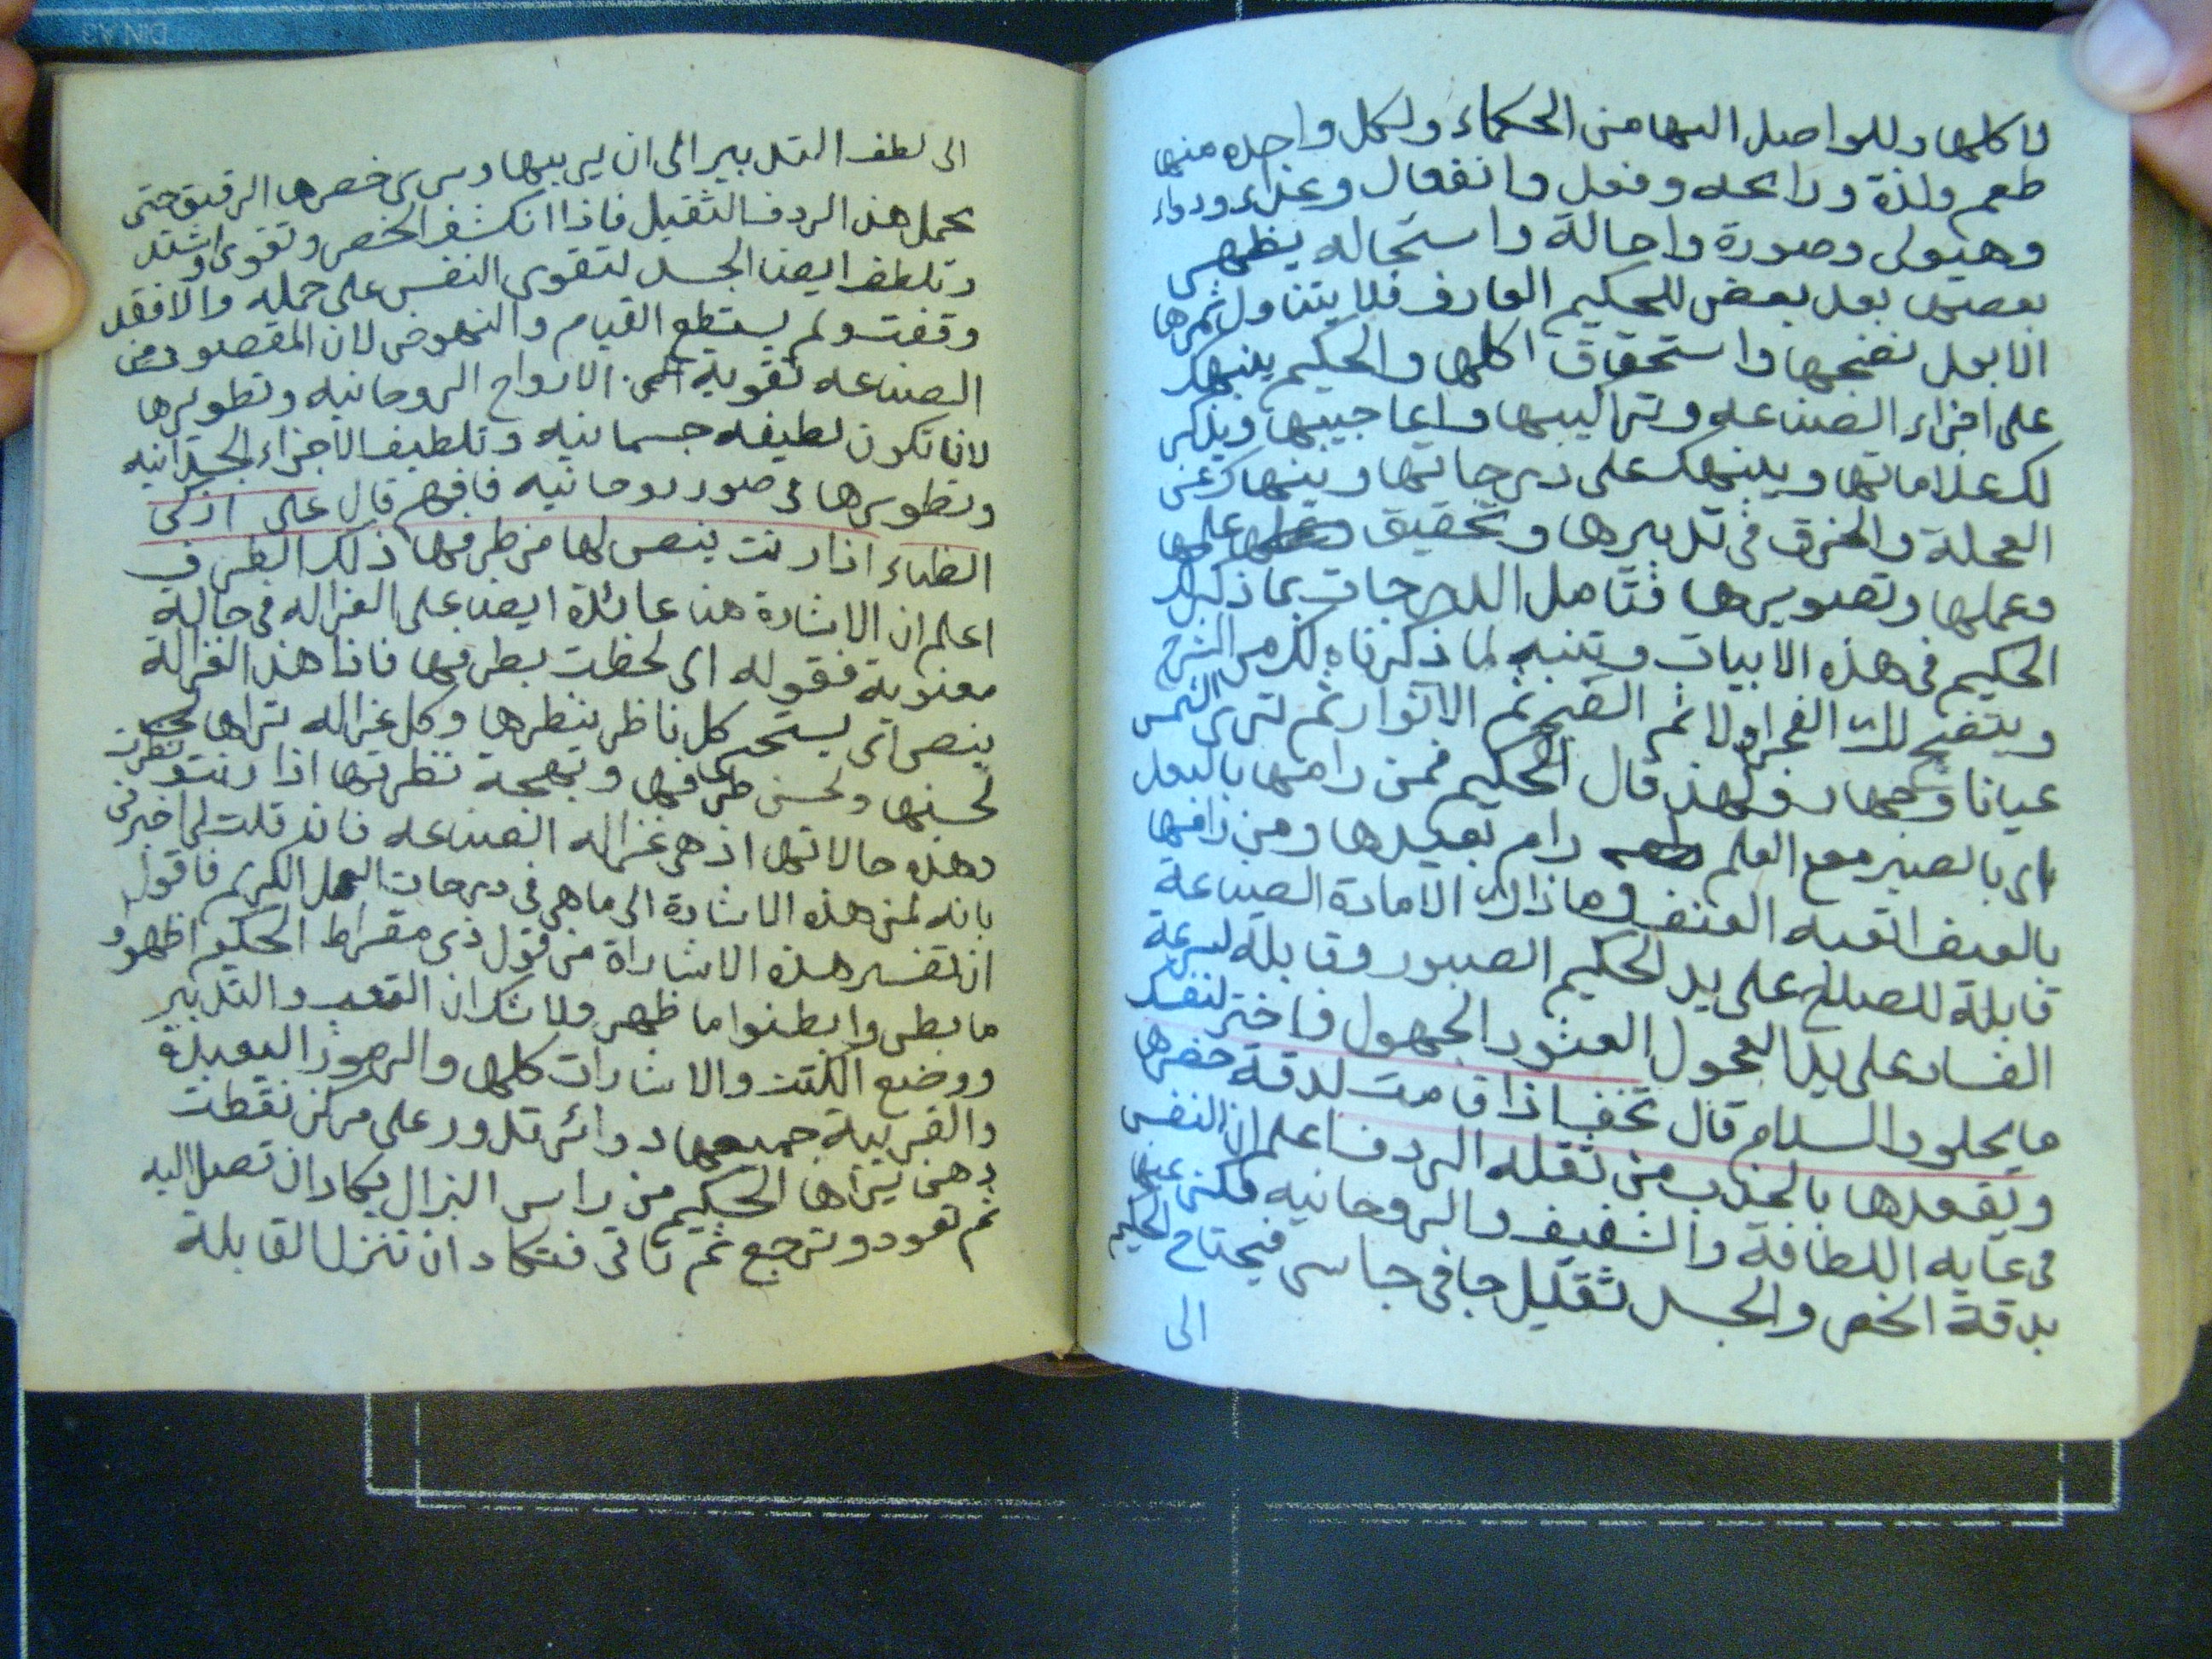 لاكلها وللواصل اليها من الحكماء ولكل واحده منها
طعم ولذة ورائحه وفعل وانفعال وغذاء ودواء
وهيولى وصورة واحالة واستحاله يظهر
بعضها بعد بعض للحكيم العارف فلا يتناول ثمرها
الا بعد نضجها واستحقاق اكلها والحكيم ينبهك
على اجزاء الصناعه وتراكيبها واعاجيبها ويذكر
لك علاماتها وينبهك على درجاتها وينهاك عن
العجلة والخرق فى تدبيرها وتحقيق علمها
وعملها وتصويرها فتامل الدرجات بما ذكر لك
الحكيم فى هذه الابيات وتنبه لما ذكرناه لك من الشرح
ويتضح لك الفجر اولا ثم الصبح ثم الانوار ثم ترى الشمس
عيانا وجهارا ولهذا قال الحكيم فمن رامها بالعدل
اى بالصبر مع العلم رام بعيدها ومن رامها
بالعنف اتعبه العنف وما ذاك الا مادة الصناعة
قابلة للصلاح على يد الحكيم الصبور وقابلة لسرعة
الفساد على يد العجول العثور الجهول فاختر لنفسك
ما يحلو والسلام قال تخف اذا قامت لدقة خصرها
ويقعدها بالجذب من ثقله الردف اعلم ان النفس
فى غايه اللطافة والشفيف والروحانيه فكنى عنها
بدقة الخصر والجسد ثقيل جافى جاسى فيحتاج الحكيم
الى
الى لطف التدبير الى ان يربيها ويربى خصرها الرقيق حتى
يحمل هذا الردف الثقيل فاذا انكشف الخصر وتقوى واشتد
وتلطف ايضا الجسد لتقوى النفس على حمله والا فقد
وقفت ولم يستطع القيام والنهوض لان المقصود من
الصناعه تقوية الارواح الروحانيه وتطويرها
لانا تكون لطيفه جسمانيه وتلطيف الاجزاء الجسدانيه
وتطويرها فى صور روحانيه فافهم قال على اذكى
الظباء اذا رنت ينص لها من طرفها ذلك الطرف
اعلم ان الاشارة هنا عائدة ايضا على الغزاله فى حالة
معنوية فقوله اى لحظت بطرفها فاذا هذا الغزالة
ينص اى يستحى كل ناظر ينظرها وكل غزاله تراها
لحسنها ولحسن طرفها وبهجة نظرتها اذا رنت ونظرت
وهذه حالاتها اذ هى غزاله الصناعه فان قلت لى اخبرنى
بانه لمن هذه الاشارة الى ما هى فى درجات العمل الكريم فاقول
ان تفسير هذه الاشاراة من قول ذى مقراط الحكيم اظهروا
ما بطن وابطنوا ما ظهر ولا شك ان التعب والتدبير
ووضع الكتب والاشارات كلها والرموز البعيدة
والقريبة جميعها دوائر تدور على مركز نقطت
دهن يراها الحكيم من راس البزال يكاد ان تصل اليه
ثم تعود وترجع ثم تاتى فتكاد ان تنزل القابلة